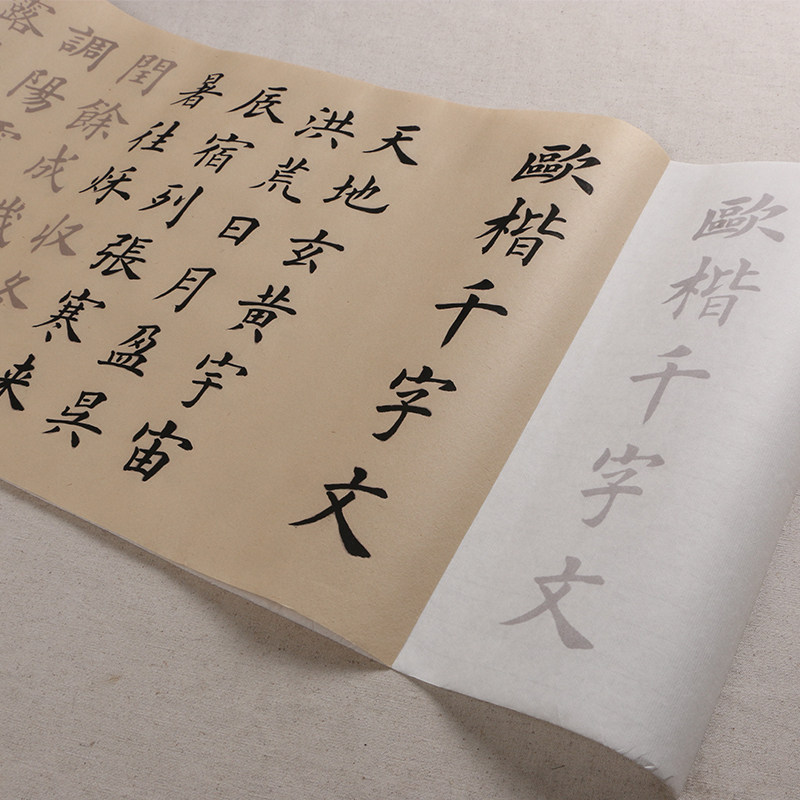 歐楷千字文
歐楷千字文
天地玄黄宇宙
洪荒日月盈昃
辰宿列張寒来
暑往秌收冬
閏餘成歲
調陽
露